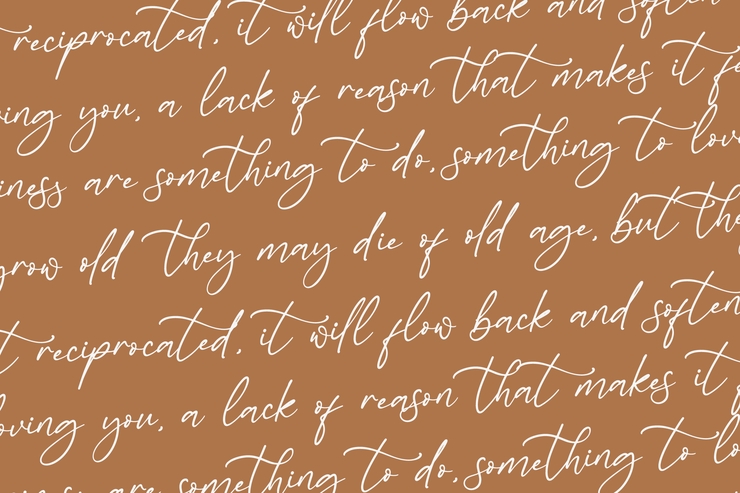 reciprocated, it will flow back and soften
you, a lack of reason that makes it
are something to do, something to
grow old they may die of old age, but
reciprocated, it will flow back and soften
loving you, a lack of reason that makes it
are something to do, something to